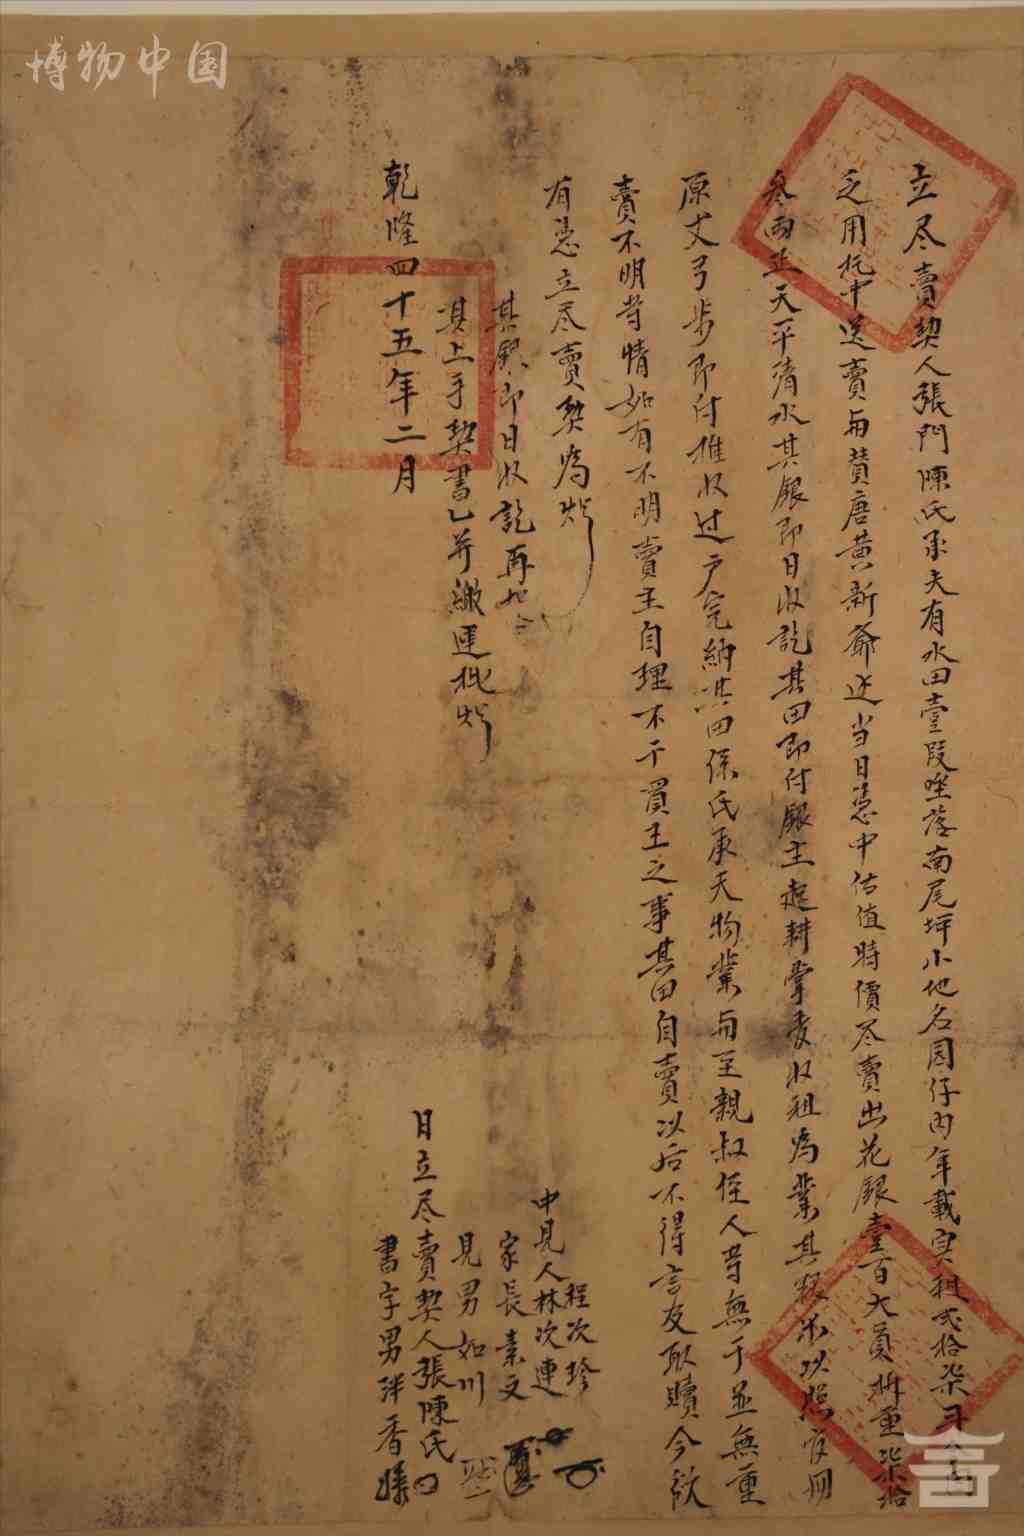 博物中国
立尽賣契人張門陳氏承夫有水田壹段坐落南尾坪小地名園仔内年載実租弍拾柒斗
乏用托中送賣與賛唐黄新爺近当日憑中估值時價尽賣出花銀壹百大員折重柒拾
叁両正天平清水其銀即日收訖其田即付銀主起耕掌麦收租為業其粮米以照官冊
原丈弓步即付推收过户完納其田係氏承夫物業與至親叔侄人等無干並無重
賣不明等情如有不明賣主自理不干買主之事其田自賣以后不得言及取贖今欲
有憑立尽賣契為炤
其銀即日收訖再炤
其上手契書乙并繳連批炤
乾隆四十五年二月
程次珍
中見人林次連
家長素文
見男如川
日立尽賣契人張陳氏
書字男洋香